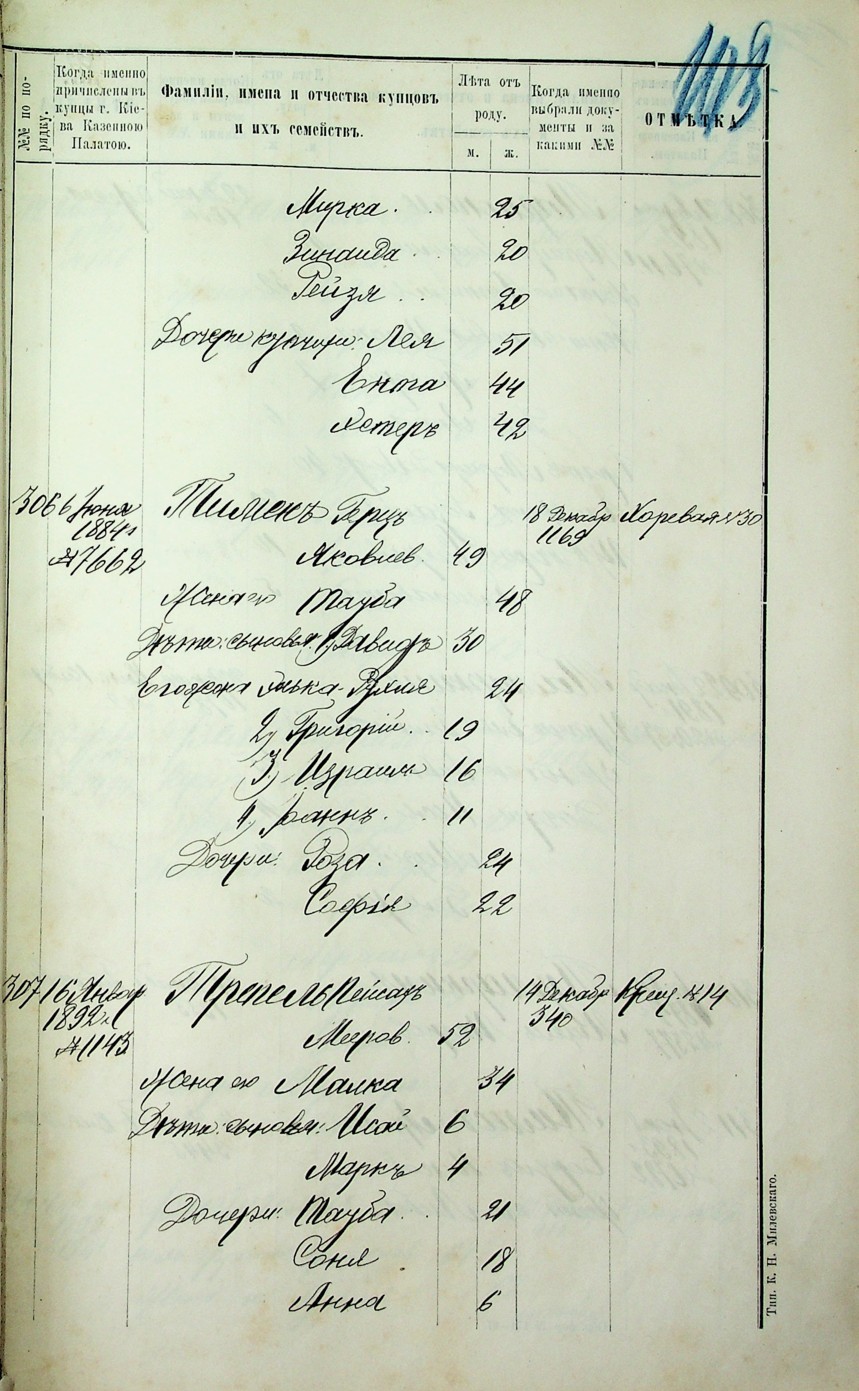 108
№№ по порядку.
Когда именно причислены въ купцы г. Кіева Казенною Палатою.
Фамиліи, имена и отчества купцовъ и ихъ семействъ.
Лѣта отъ роду.
м. ж.
Когда именно выбрали документы и за какими №№
ОТМѢТКА.
Мирка. 25
Зинаида 20
Рейзя 20
Дочери купчихи: Лея 51
Ента 44
Хстеръ 42
306 6 Іюня Тименъ Герцъ 18 Декабр Хоревая № 30
1884 г 1169
№ 7662 Яковлев. 49
Жена его Тауба 48
Дѣти: сыновья: 1) Давидъ 30
Его жена Рухля 24
2) Григорій. 19
3) Израиль 16
4) 11
Дочери: Роза. 24
Софія 22
307 16 Январ Трепель Пейсахъ 14 Декабр Крещ. № 14
1892 г 340
№ 1143 Мееров. 52
Жена его Малка 34
Дѣти: сыновья: Исай 6
Маркъ 4
Дочери: Тауба. 21
Соня 18
Анна 6
Тип. К. Н. Милевскаго.